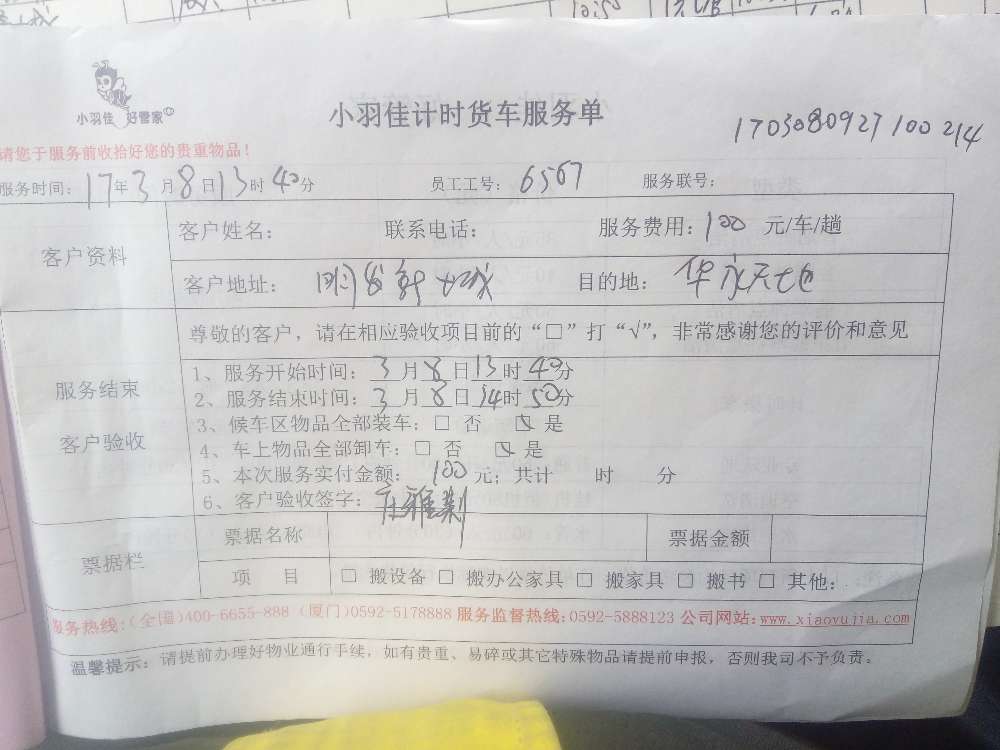 小羽佳 好管家
小羽佳计时货车服务单
1703080927100214
请您于服务前收拾好您的贵重物品！
服务时间：17年3月8日13时40分 员工工号：6567 服务联号：
客户资料
客户姓名： 联系电话： 服务费用：100 元/车/趟
客户地址： 明发新城 目的地： 华永天地
服务结束
客户验收
尊敬的客户，请在相应验收项目前的“□”打“√”，非常感谢您的评价和意见
1、服务开始时间：3月8日13时40分
2、服务结束时间：3月8日14时50分
3、候车区物品全部装车：□ 否 ☑ 是
4、车上物品全部卸车：□ 否 ☑ 是
5、本次服务实付金额： 100 元；共计 时 分
6、客户验收签字：
票据栏
票据名称 票据金额
项 目 □ 搬设备 □ 搬办公家具 □ 搬家具 □ 搬书 □ 其他：
服务热线：（全国）400-6655-888（厦门）0592-5178888 服务监督热线：0592-5888123 公司网站：www.xiaoyujia.com
温馨提示：请提前办理好物业通行手续，如有贵重、易碎或其它特殊物品请提前申报，否则我司不予负责。